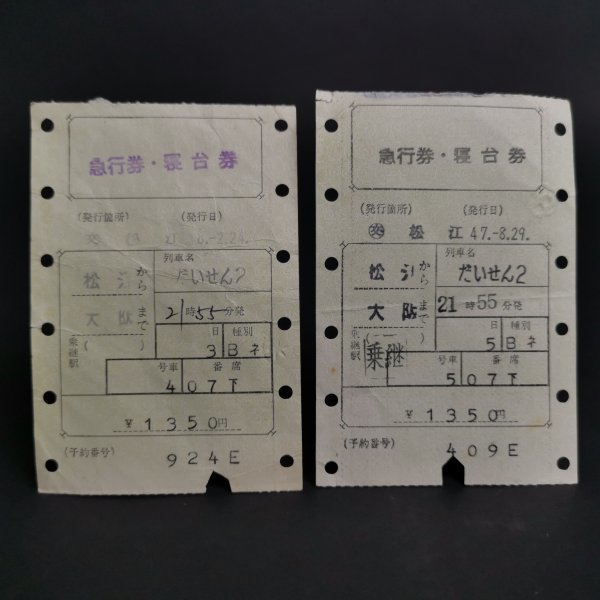 急行券・寝台券
(発行箇所) (発行日)
列車名
松江から だいせん2
大阪まで 21時55分発
乗継駅( )
日 種別
3 Bネ
号車 番席
4 07下
¥1350円
(予約番号)
924E
急行券・寝台券
(発行箇所) (発行日)
交 松江 47.-8.29.
列車名
松江から だいせん2
大阪まで 21時55分発
乗継駅( )
日 種別
5 Bネ
乗継
号車 番席
5 07下
¥1350円
(予約番号)
409E